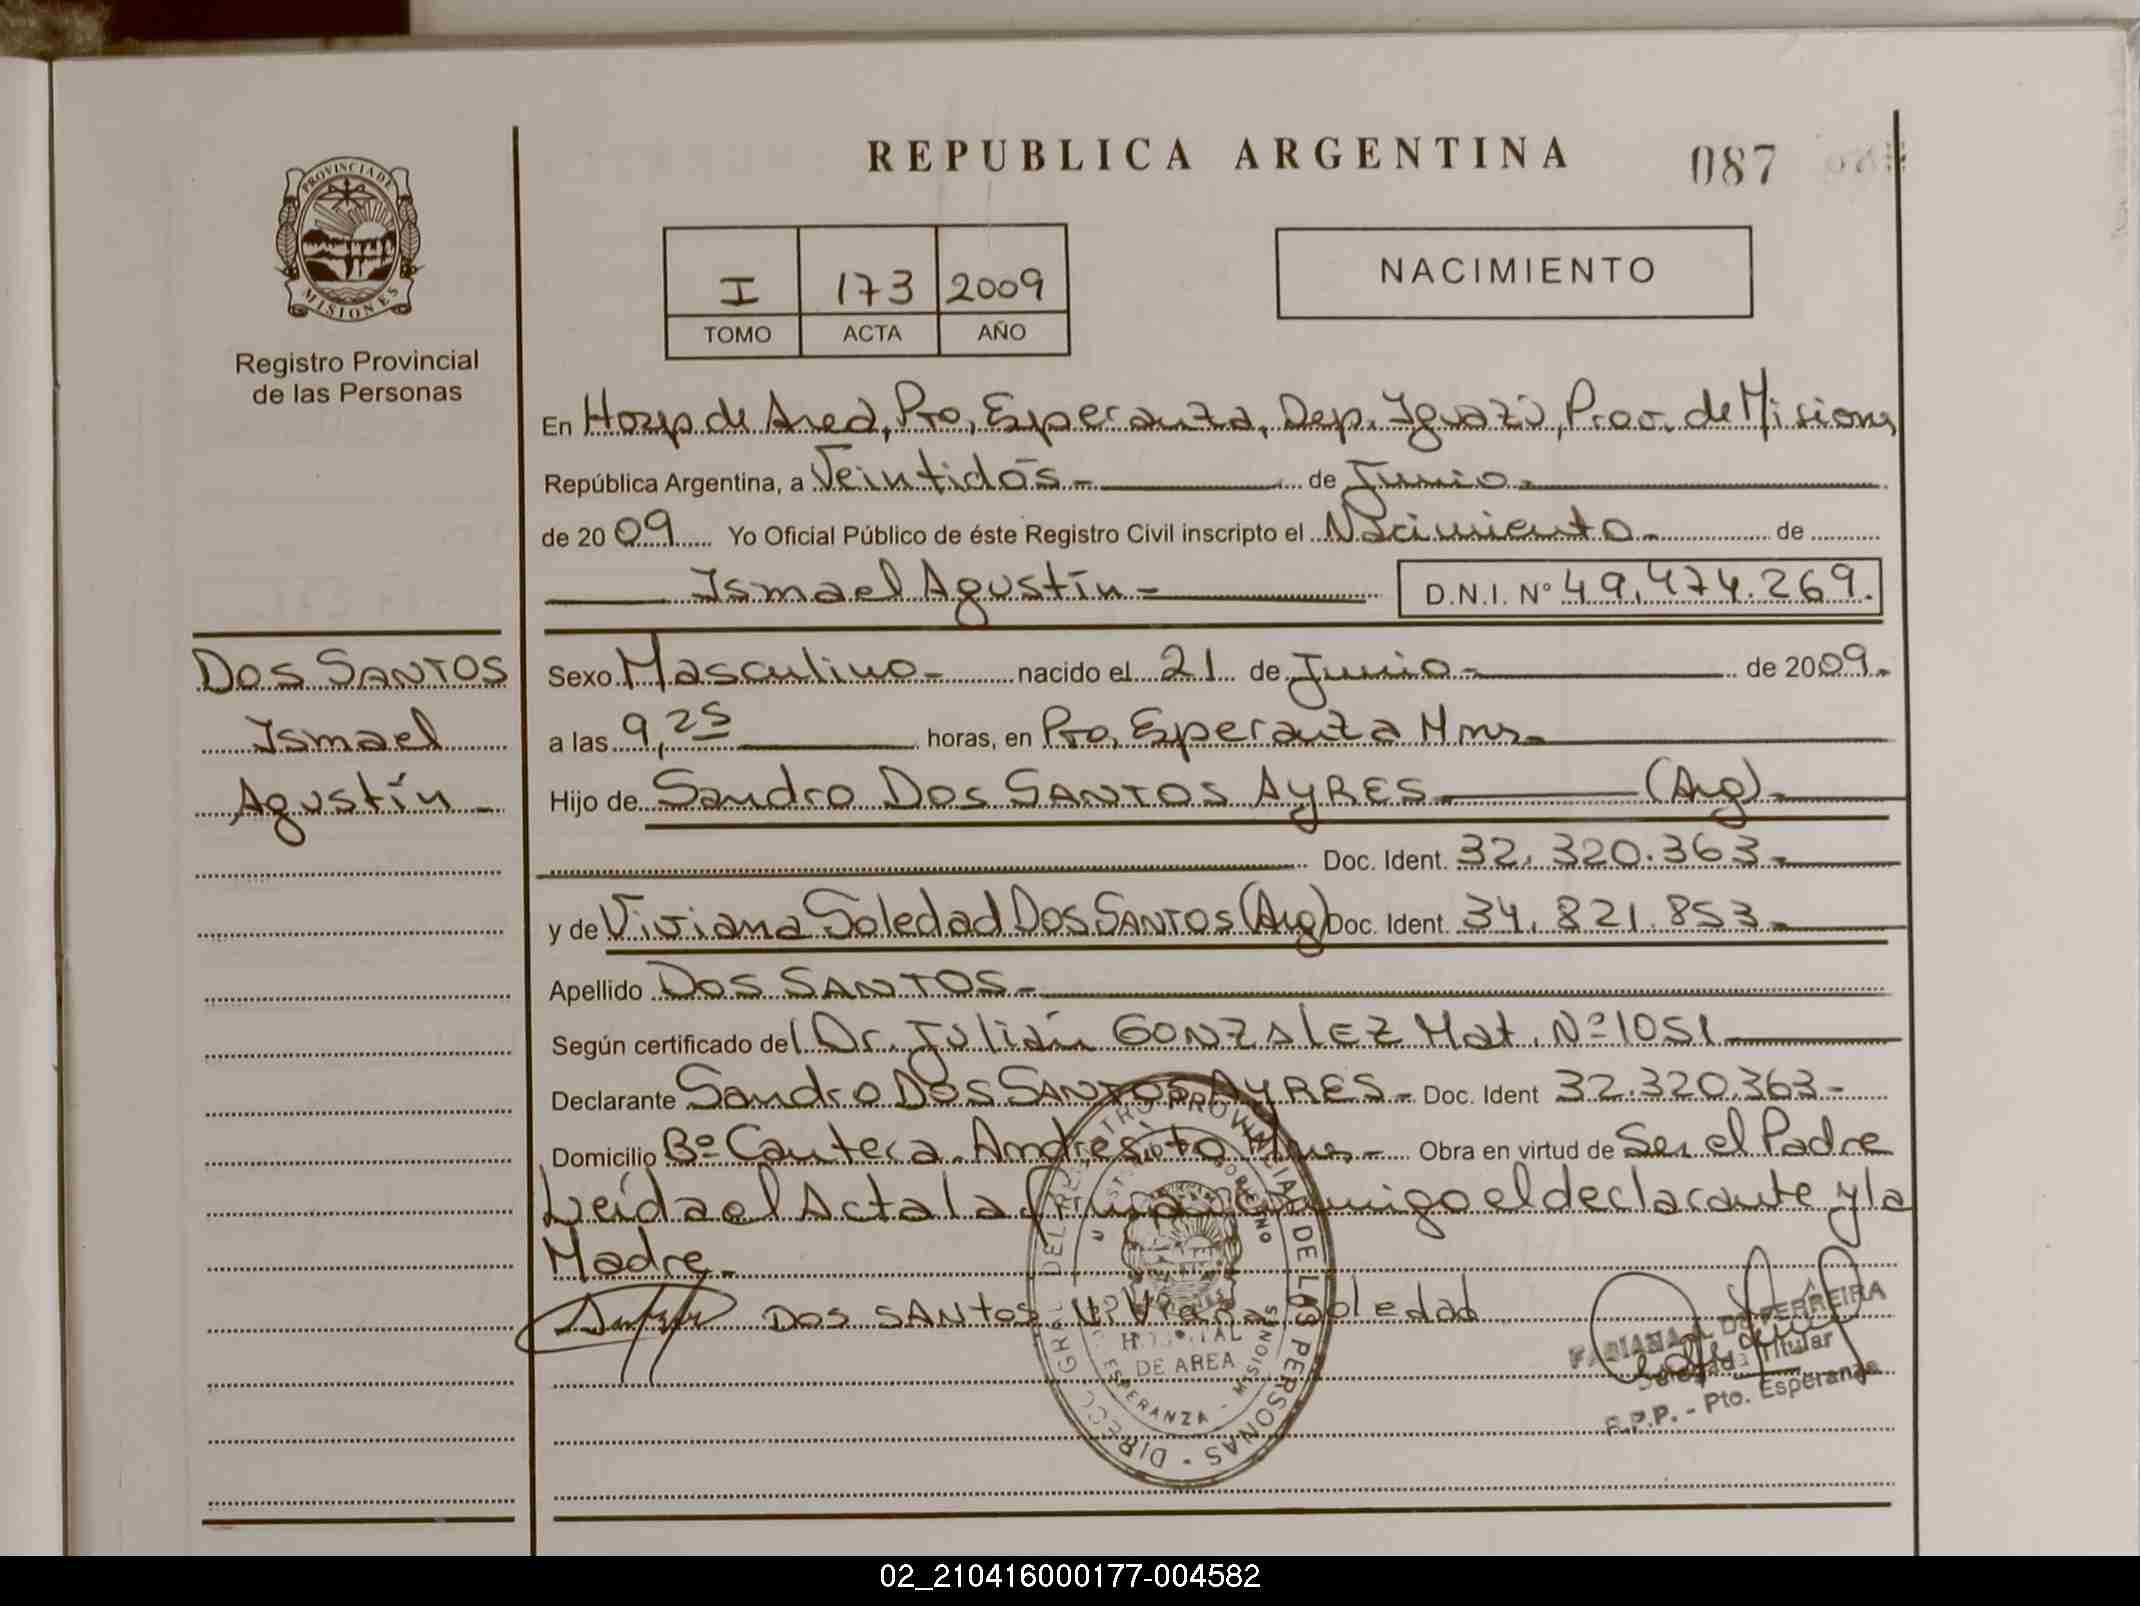 REPUBLICA ARGENTINA 087
PROVINCIA DE
MISIONES
Registro Provincial
de las Personas
I 173 2009
TOMO ACTA AÑO
NACIMIENTO
En Hosp de Area, Pto, Esperanza, Dep. Iguazú, Prov. de Misiones
República Argentina, a Veintidós - de Junio -
de 2009 Yo Oficial Público de éste Registro Civil inscripto el Nacimiento - de
Ismael Agustín - D.N.I. Nº 49.474.269.
DOS SANTOS
Ismael
Agustín -
Sexo Masculino - nacido el 21 de Junio - de 2009.
a las 9,25 horas, en Pto, Esperanza Mnes -
Hijo de Sandro DOS SANTOS AYRES - (Arg) -
Doc. Ident. 32.320.363 -
y de Viviana Soledad DOS SANTOS (Arg) Doc. Ident. 34.821.853 -
Apellido DOS SANTOS -
Según certificado del Dr. Julián GONZALEZ Mat. Nº 1051 -
Declarante Sandro DOS SANTOS AYRES - Doc. Ident 32.320.363 -
Domicilio Bº Cantera - Andresito Mnes - Obra en virtud de Ser el Padre
Leída el Acta la firman conmigo el declarante y la
Madre -
DOS SANtos ViViana Soledad
DIRECC GRAL DEL REGISTRO PROVINCIAL DE LAS PERSONAS
HOSPITAL
DE AREA
ESPERANZA - MISIONES
FABIANA L. DE FERREIRA
Delegada Titular
R.P.P. - Pto. Esperanza
02_210416000177-004582